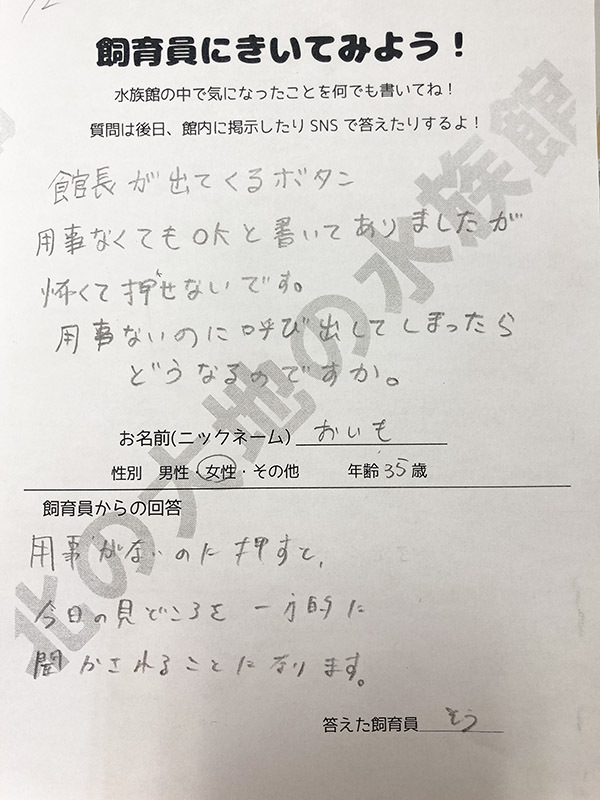 飼育員にきいてみよう！
水族館の中で気になったことを何でも書いてね！
質問は後日、館内に掲示したりSNSで答えたりするよ！
館長が出てくるボタン
用事なくてもOKと書いてありましたが
怖くて押せないです。
用事ないのに呼び出してしまったら
どうなるのですか。
お名前(ニックネーム) おいも
性別 男性・女性・その他 年齢 35 歳
飼育員からの回答
用事がないのに押すと、
今日の見どころを一方的に
聞かされることになります。
答えた飼育員 そう
北の大地の水族館